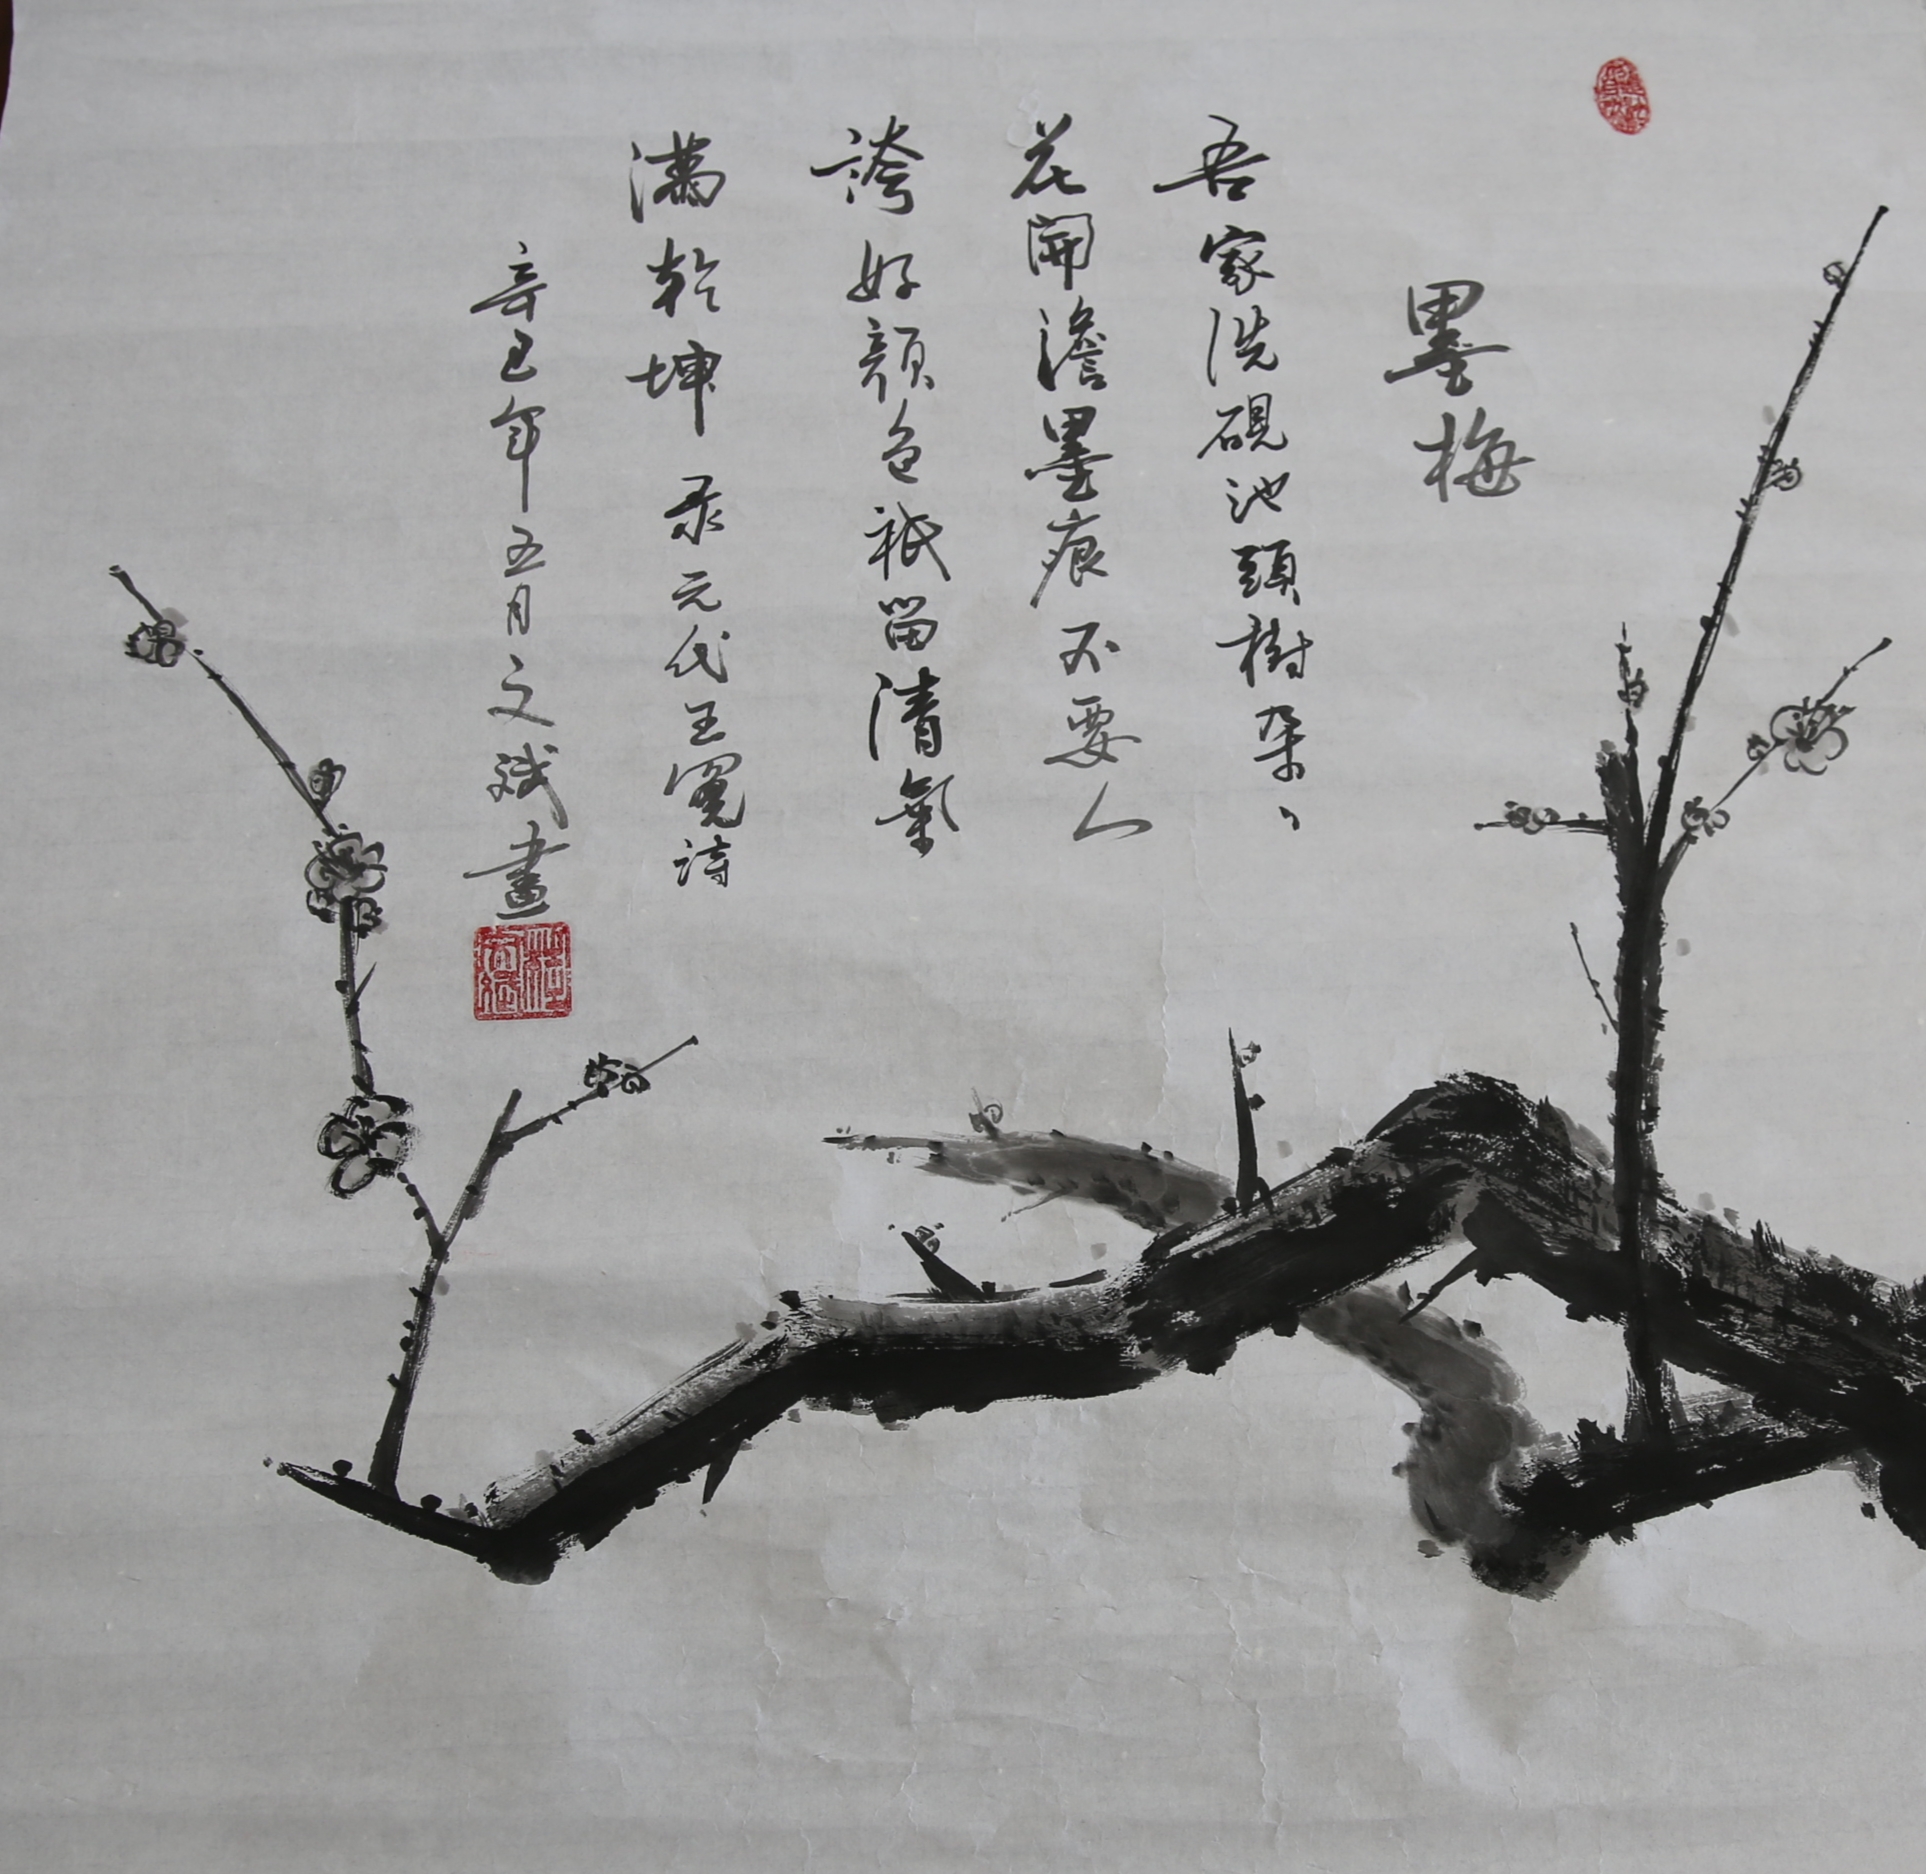 墨梅
吾家洗硯池頭樹朵々
花開澹墨痕不要人
誇好顏色祇留清氣
滿乾坤 录元代王冕詩
辛巳年五月文斌畫